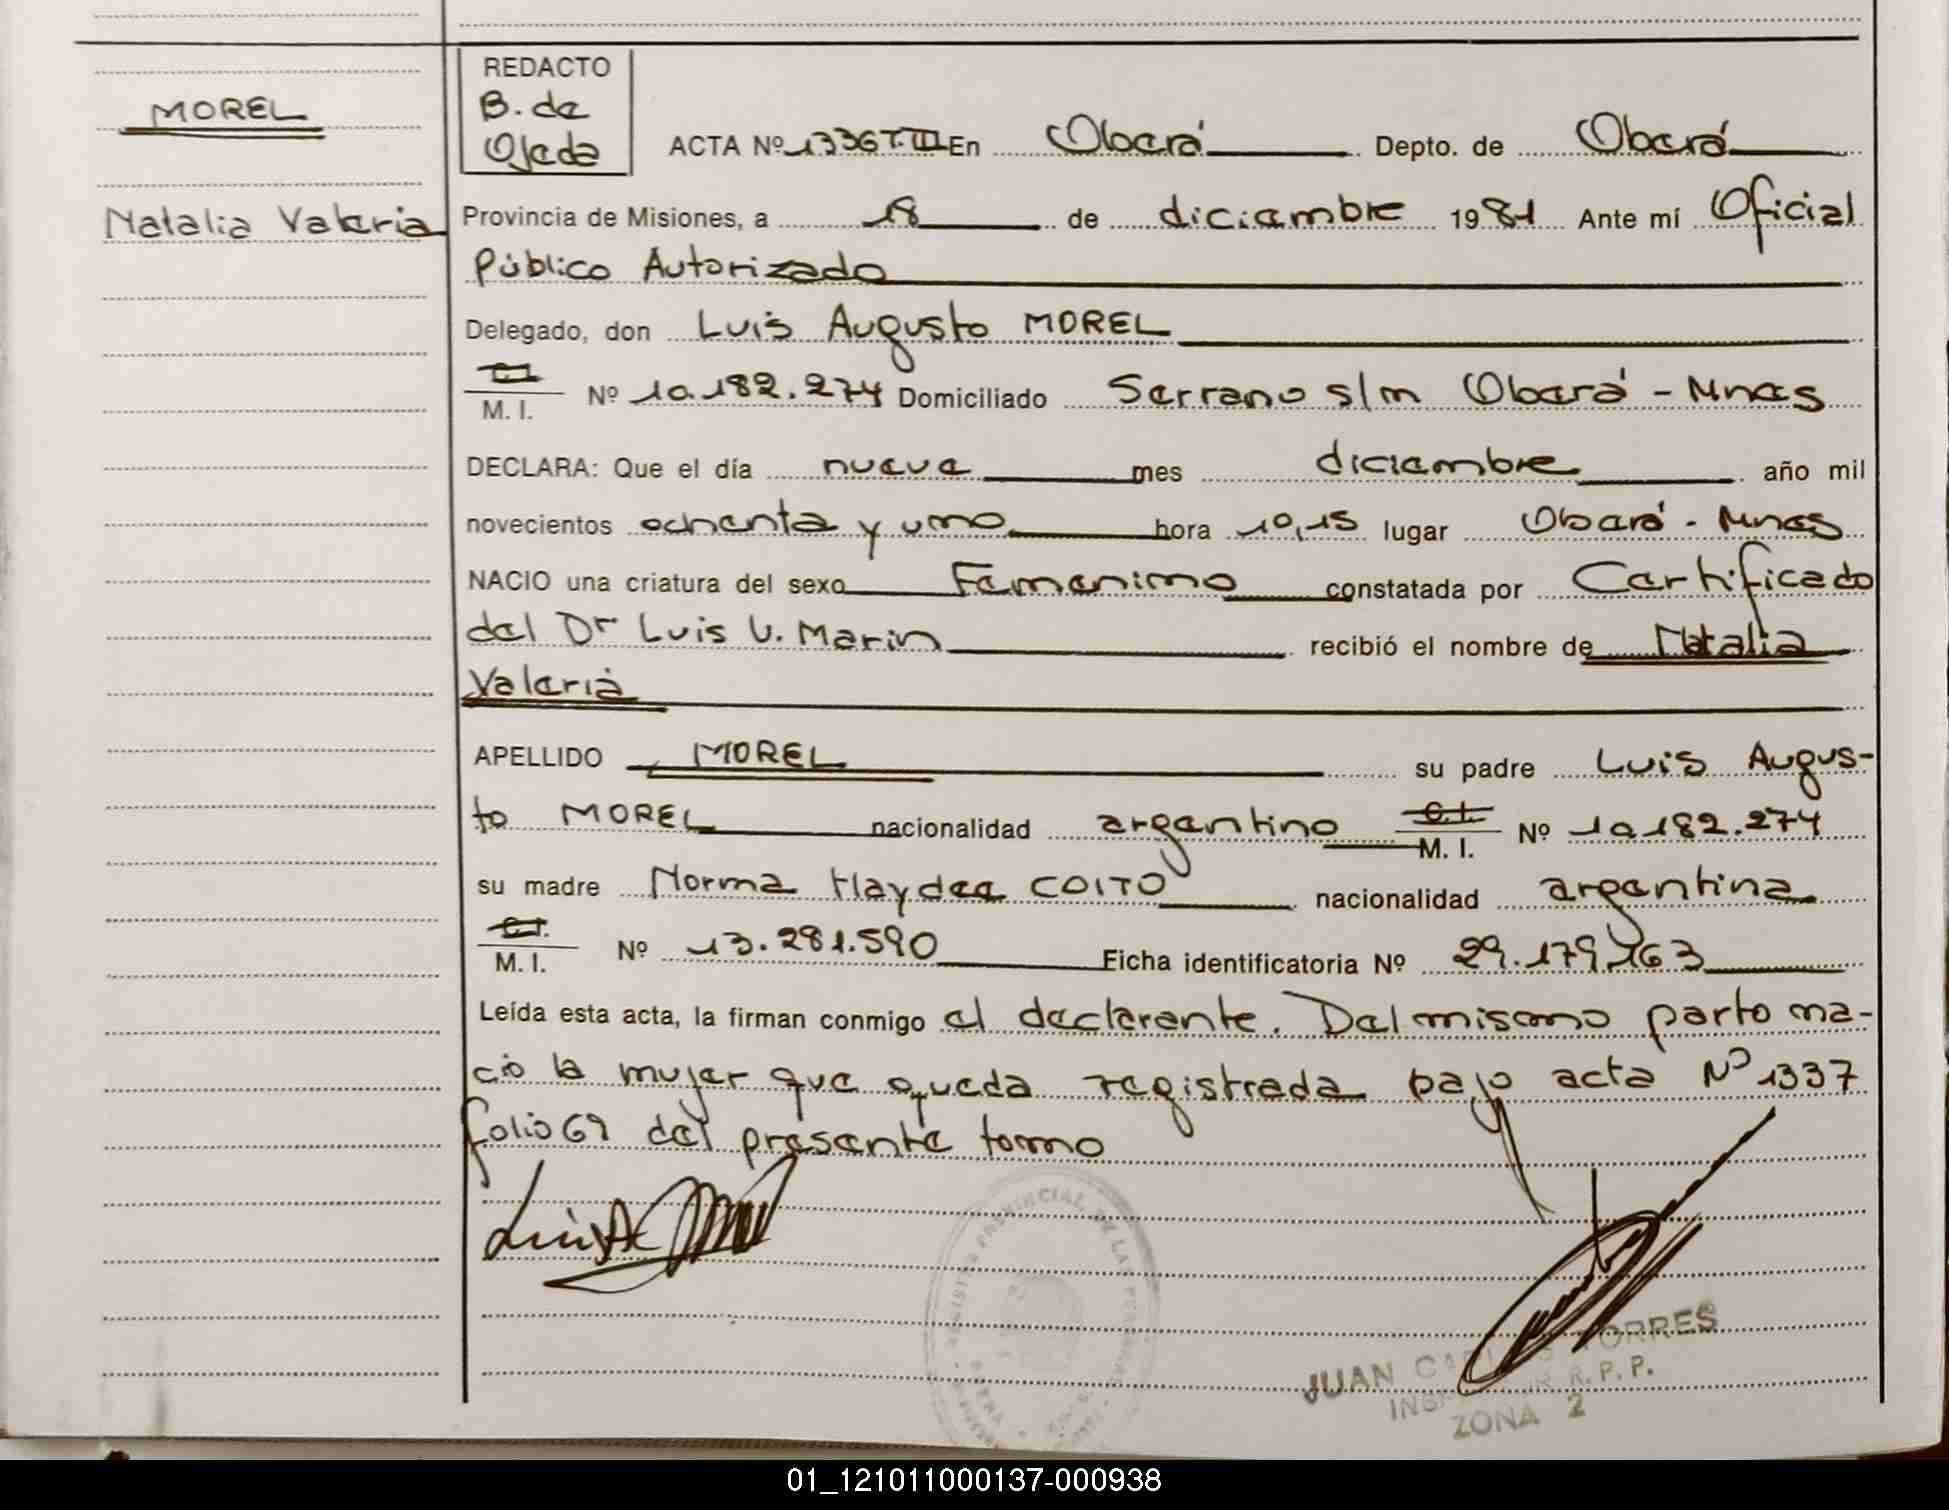 MOREL
Natalia Valeria
REDACTO
B. de
Ojeda
ACTA Nº 1336 T. III En Oberá Depto. de Oberá
Provincia de Misiones, a 18 de diciembre 1981 Ante mí Oficial
Público Autorizado
Delegado, don Luis Augusto MOREL
C.I.
M. I. Nº 10.182.274 Domiciliado Serrano s/n Oberá - Mnes
DECLARA: Que el día nueve mes diciembre año mil
novecientos ochenta y uno hora 10,15 lugar Oberá - Mnes
NACIO una criatura del sexo Femenino constatada por Certificado
del Dr Luis V. Marin recibió el nombre de Natalia
Valeria
APELLIDO MOREL su padre Luis Augus-
to MOREL nacionalidad argentino C.I. M. I. Nº 10.182.274
su madre Norma Haydee COITO nacionalidad argentina
C.I.
M. I. Nº 13.281.590 Ficha identificatoria Nº 29.179.163
Leída esta acta, la firman conmigo el declarante. Del mismo parto na-
ció la mujer que queda registrada bajo acta Nº 1337
folio 69 del presente tomo
REGISTRO PROVINCIAL DE LAS PERSONAS
JUAN CARLOS TORRES
R. P. P.
ZONA 2
01_121011000137-000938